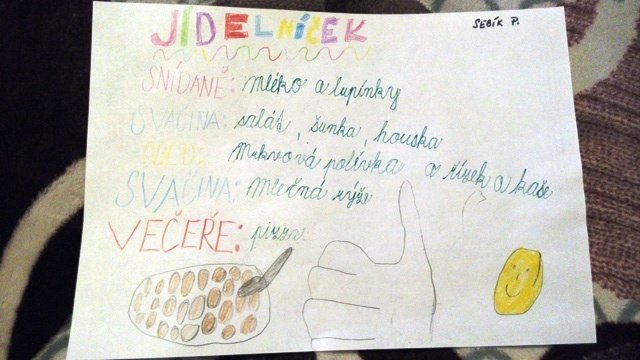 JÍDELNÍČEK
SEBÍK P.
SNÍDANĚ: mléko a lupínky
SVAČINA: salát, šunka, houska
OBĚD: Mrkvová polívka a řízek a kaše
SVAČINA: Mléčná rýže
VEČEŘE: pizza